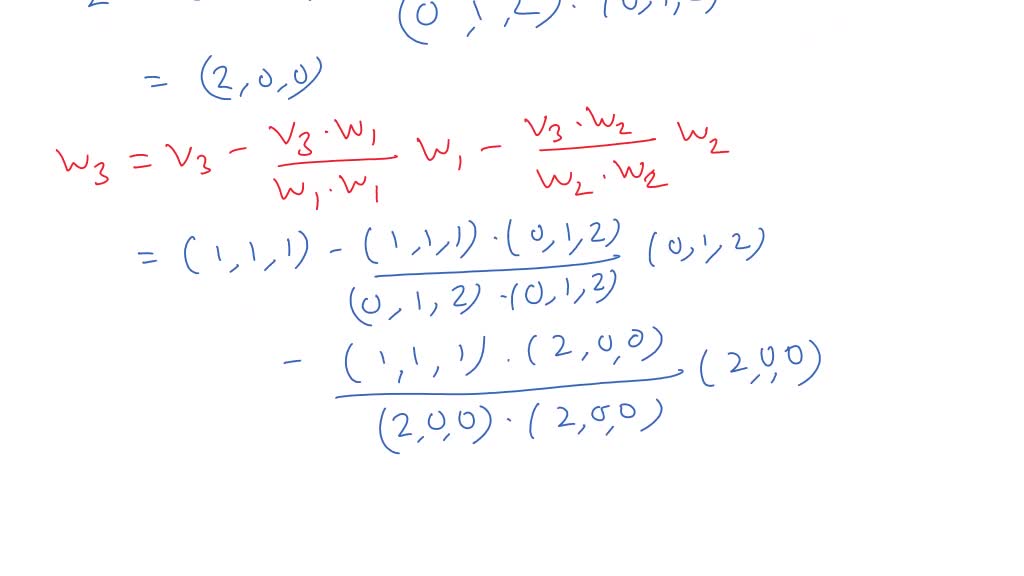 (0, 1, 2) · (0, 1, 2)
= (2, 0, 0)
w₃ = v₃ - (v₃ · w₁)/(w₁ · w₁) w₁ - (v₃ · w₂)/(w₂ · w₂) w₂
= (1, 1, 1) - ((1, 1, 1) · (0, 1, 2))/((0, 1, 2) · (0, 1, 2)) (0, 1, 2)
- ((1, 1, 1) · (2, 0, 0))/((2, 0, 0) · (2, 0, 0)) (2, 0, 0)